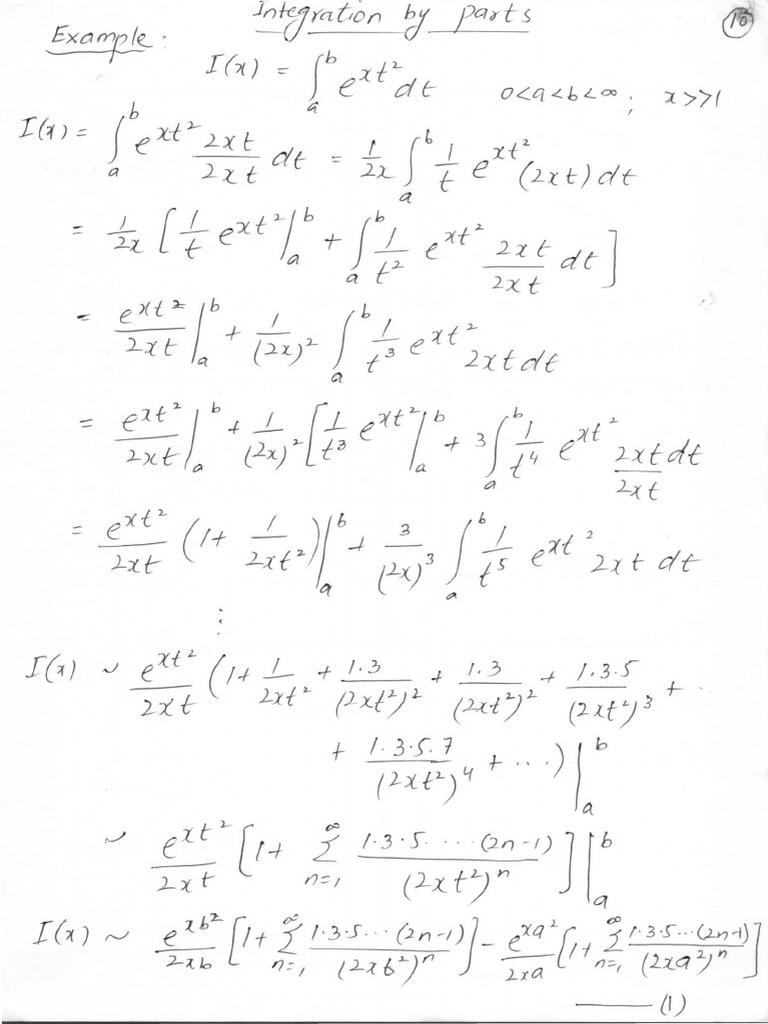 Integration by parts
(10)
Example:
I(x) = ∫_a^b e^{xt²} dt    0<a<b<∞; x>>1
I(x) = ∫_a^b e^{xt²} \frac{2xt}{2xt} dt = \frac{1}{2x} ∫_a^b \frac{1}{t} e^{xt²} (2xt) dt
= \frac{1}{2x} [ \frac{1}{t} e^{xt²} |_a^b + ∫_a^b \frac{1}{t²} e^{xt²} \frac{2xt}{2xt} dt ]
= \frac{e^{xt²}}{2xt} |_a^b + \frac{1}{(2x)²} ∫_a^b \frac{1}{t³} e^{xt²} 2xt dt
= \frac{e^{xt²}}{2xt} |_a^b + \frac{1}{(2x)²} [ \frac{1}{t³} e^{xt²} |_a^b + 3 ∫_a^b \frac{1}{t⁴} e^{xt²} \frac{2xt dt}{2xt}
= \frac{e^{xt²}}{2xt} (1 + \frac{1}{2xt²}) |_a^b + \frac{3}{(2x)³} ∫_a^b \frac{1}{t⁵} e^{xt²} 2xt dt
⋮
I(x) ~ \frac{e^{xt²}}{2xt} (1 + \frac{1}{2xt²} + \frac{1.3}{(2xt²)²} + \frac{1.3}{(2xt²)²} + \frac{1.3.5}{(2xt²)³} + ..
+ \frac{1.3.5.7}{(2xt²)⁴} + ...) |_a^b
~ \frac{e^{xt²}}{2xt} [1 + Σ_{n=1}^∞ \frac{1.3.5.....(2n-1)}{(2xt²)^n}] |_a^b
I(x) ~ \frac{e^{xb²}}{2xb} [1 + Σ_{n=1}^∞ \frac{1.3.5...(2n-1)}{(2xb²)^n}] - \frac{e^{xa²}}{2xa} [1 + Σ_{n=1}^∞ \frac{1.3.5...(2n-1)}{(2xa²)^n}]
—— (1)